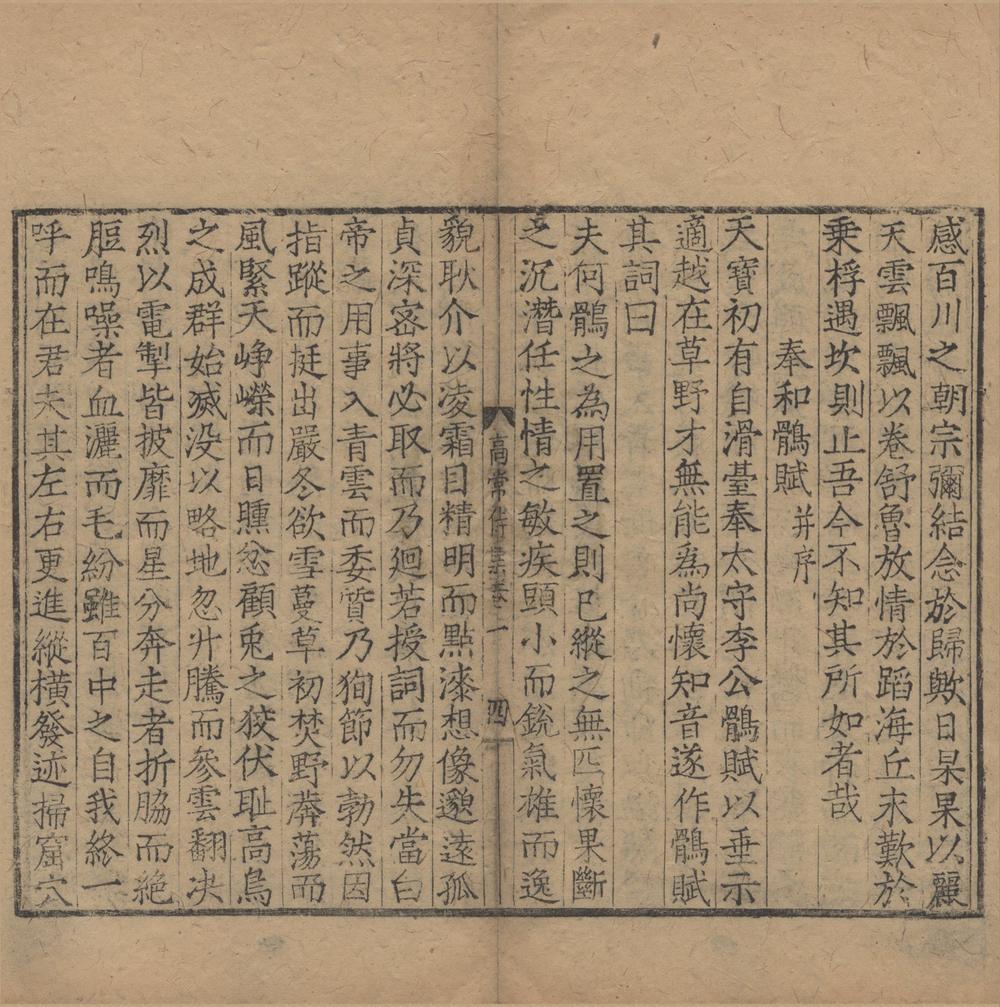 感百川之朝宗彌結念於歸歟日杲杲以麗
天雲飄飄以卷舒魯放情於蹈海丘末歎於
乗桴遇坎則止吾今不知其所如者哉
奉和鶻賦 并序
天寶初有自滑臺奉太守李公鶻賦以垂示
適越在草野才無能為尚懷知音遂作鶻賦
其詞曰
夫何鶻之為用置之則已縱之無匹懷果斷
之沉潛任性情之敏疾頭小而銳氣雄而逸
高常侍集卷一 四
貌耿介以凌霜目精明而點漆想像邈遠孤
貞深宻將必取而乃廻若授詞而勿失當白
帝之用事入青雲而委質乃狥節以勃然因
指蹤而挺出嚴冬欲雪蔓草初焚野莽蕩而
風緊天崢嶸而日曛忿顧兎之狡伏耻高鳥
之成群始滅没以略地忽升騰而參雲翻决
烈以電掣皆披靡而星分奔走者折脇而絶
脰鳴噪者血灑而毛紛雖百中之自我終一
呼而在君夫其左右更進縱横發迹掃窟穴